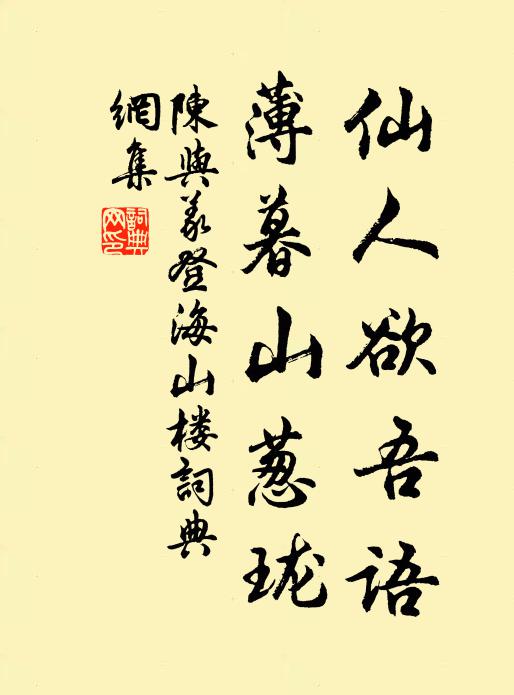 仙人欲吾语
薄暮山葱珑
陳與义登海山楼詞典
網集
詞典
网印